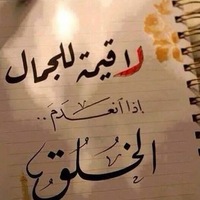 لا قيمة للجمال
إذا انعدمَ..
الخُلق